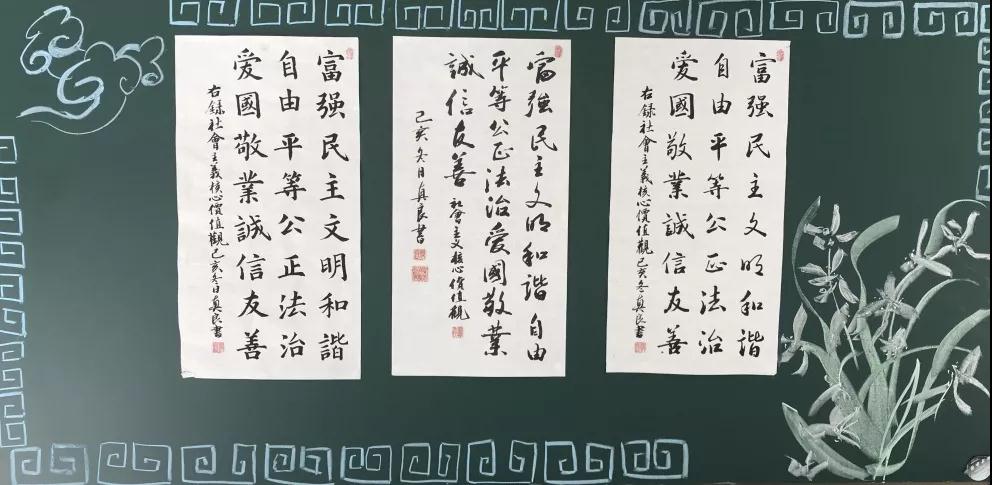 富强民主文明和諧
自由平等公正法治
爱國敬業誠信友善
右録社會主義核心價值觀己亥冬真良書
富強民主文明和諧自由
平等公正法治爱國敬業
誠信友善社會主义核心價值觀
己亥冬日真良書
富强民主文明和諧
自由平等公正法治
爱國敬業誠信友善
右録社會主義核心價值觀己亥冬日真良書